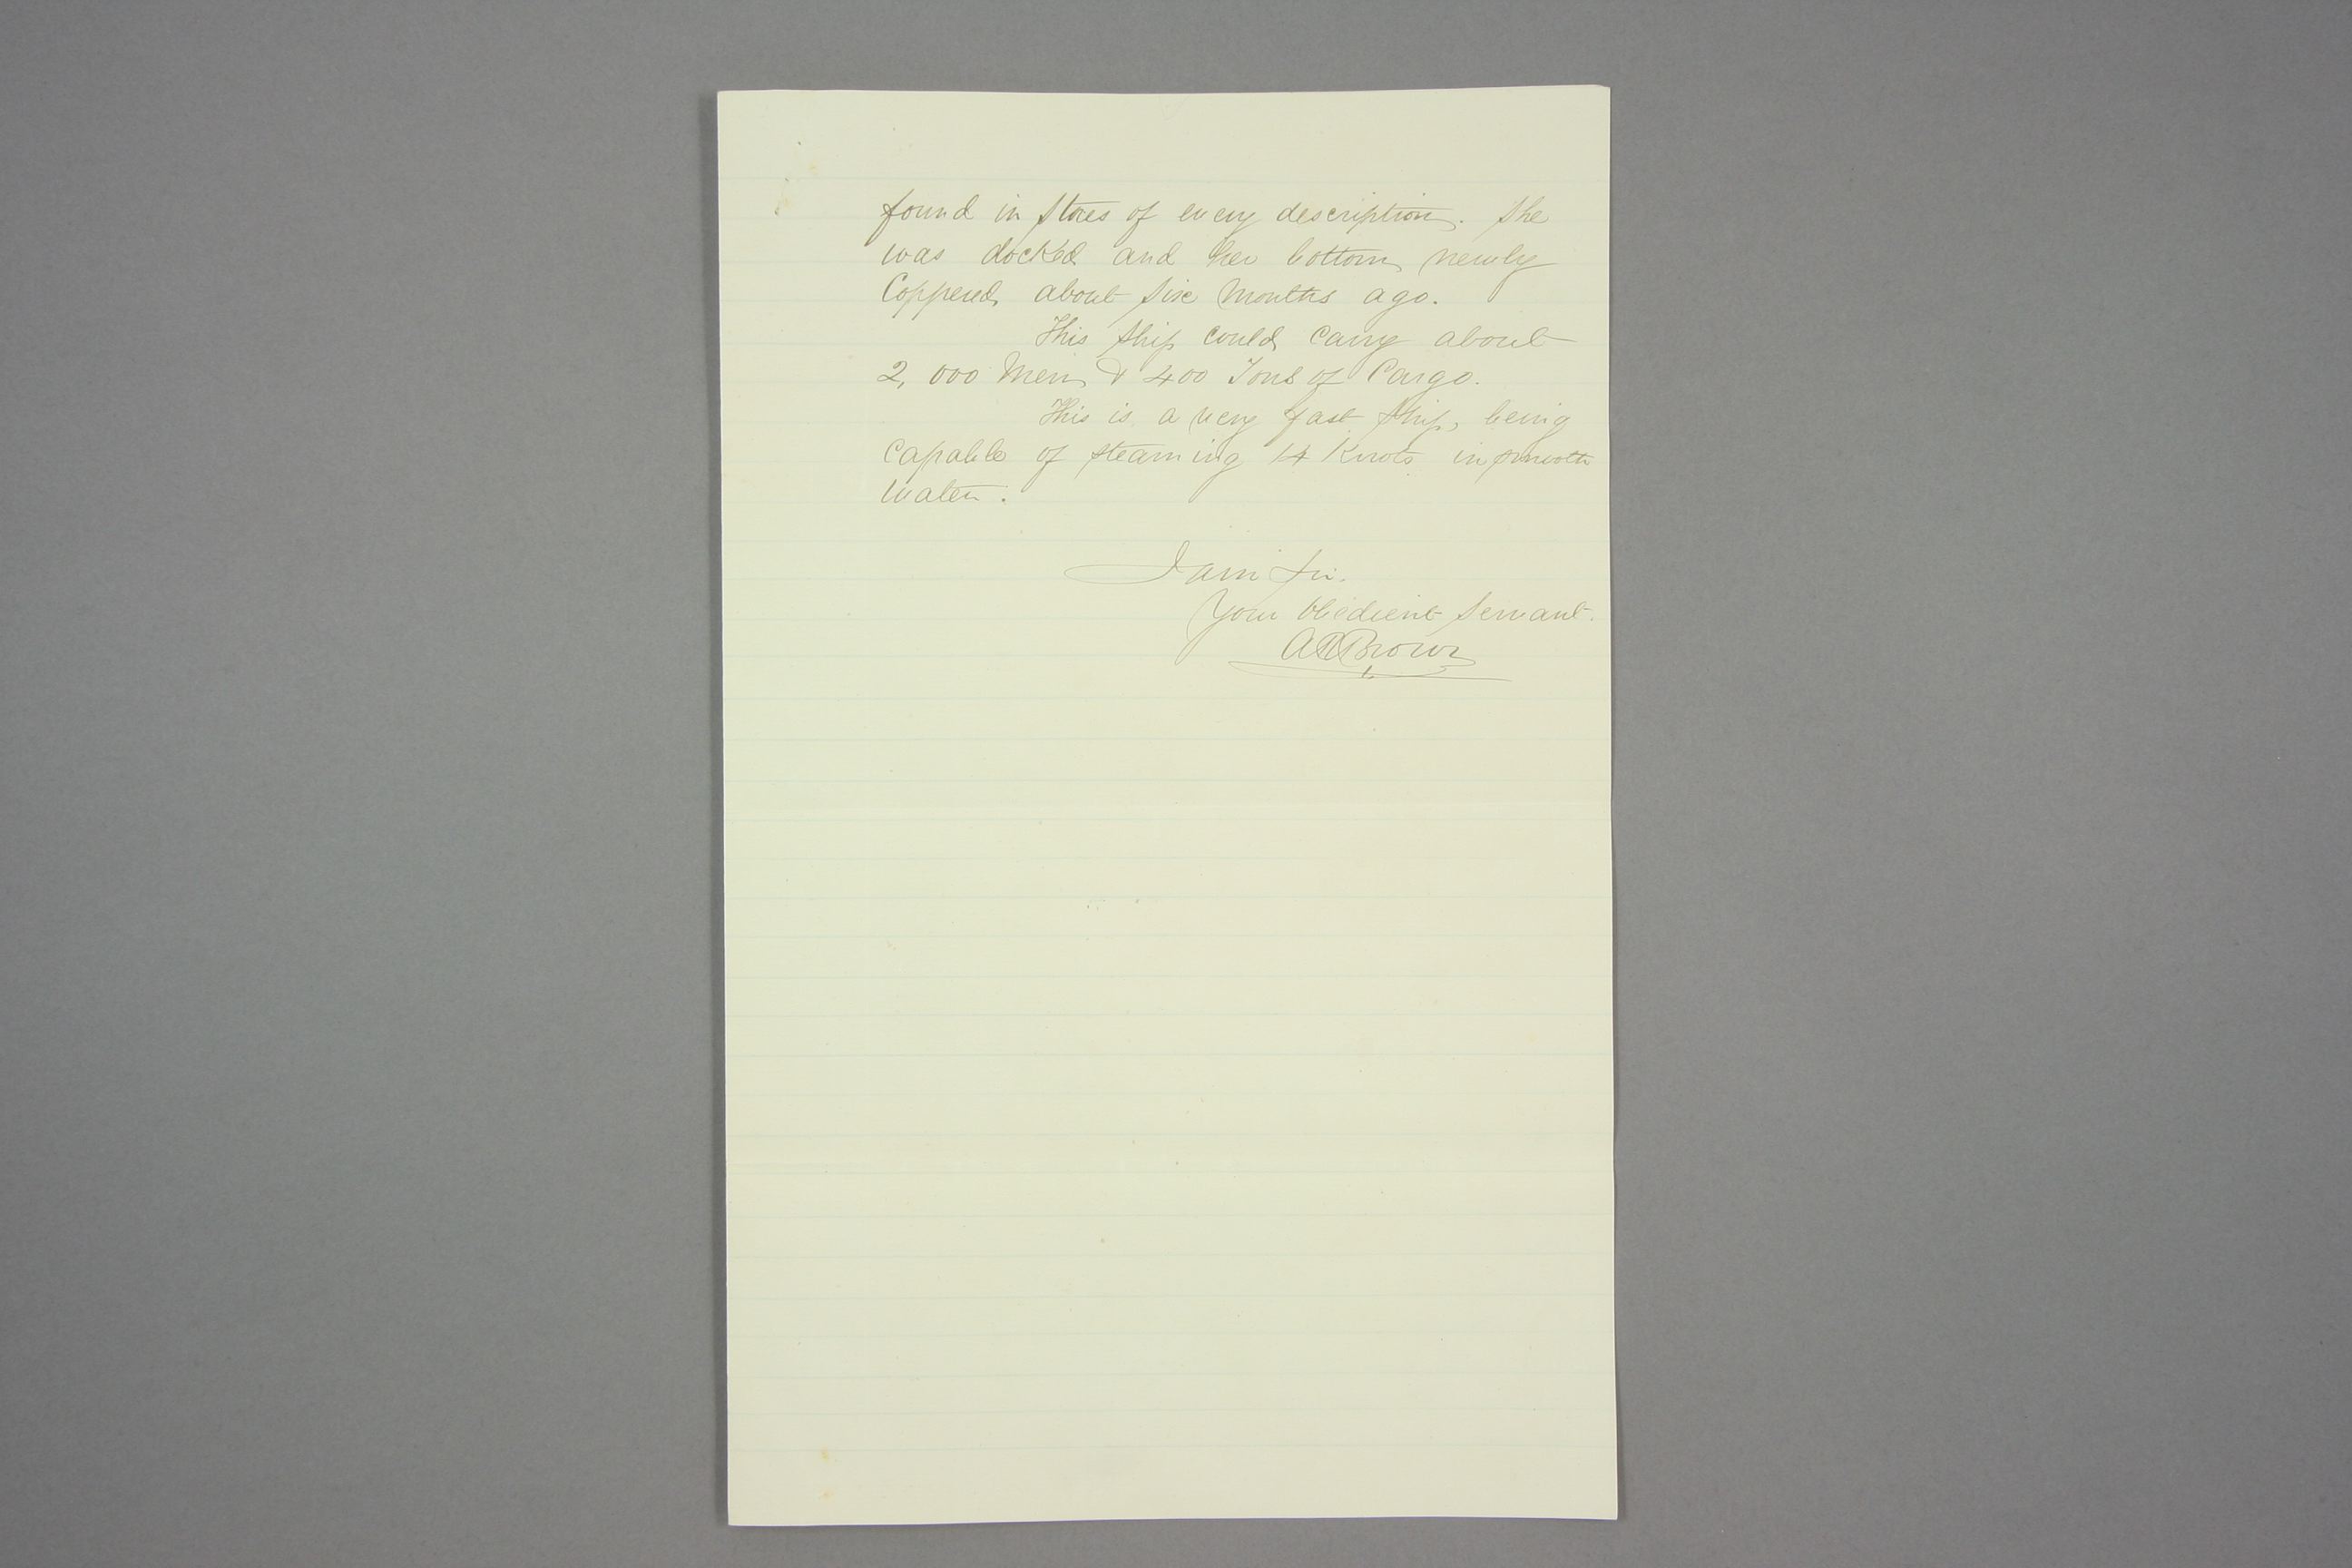 found in stores of every description. She
was docked and her bottom newly
Coppered about six months ago.
This ship could carry about
2,000 Men & 400 Tons of Cargo.
This is a very fast ship, being
capable of steaming 14 Knots in smooth
water.
I am Sir.
Your Obedient Servant.
A R Brown